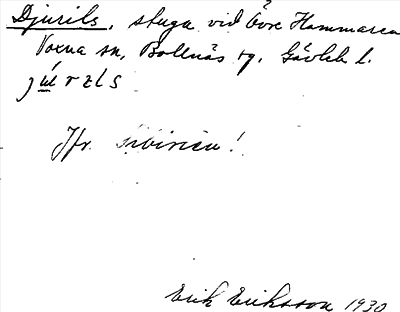 Djurils, stuga vid Övre Hammaren
Voxna sn, Bollnäs tg. Gävleb l.
Jfr. Sibirien!
Erik Eriksson 1930